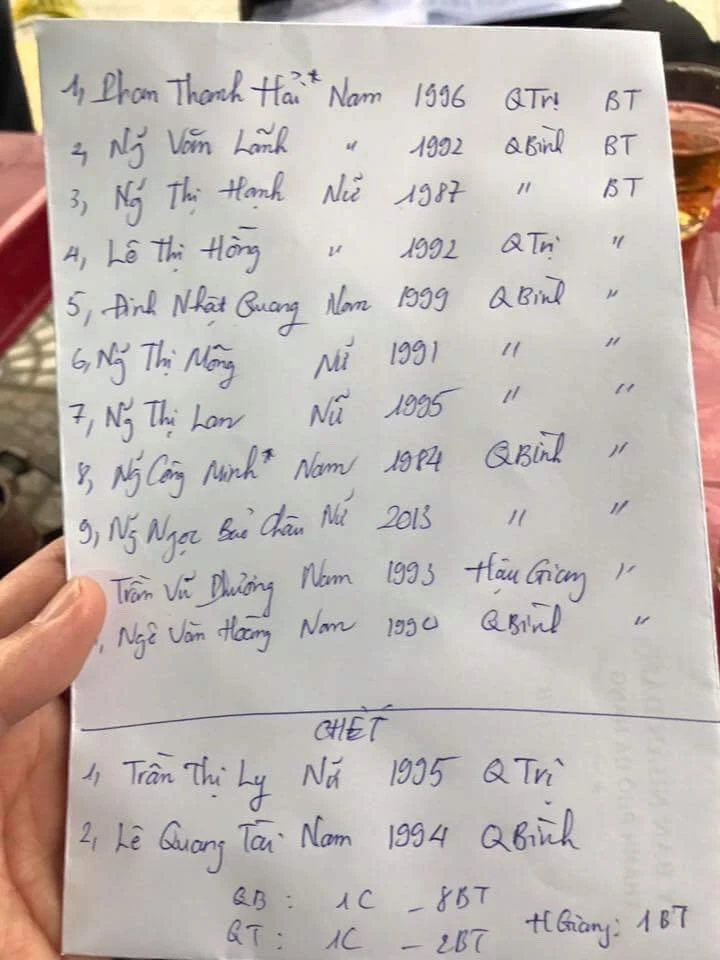 1, Phan Thanh Hải* Nam 1996 QTrị BT
2, Ng̃ Văn Lãnh " 1992 QBình BT
3, Ng̃ Thị Hạnh Nữ 1987 " BT
4, Lê Thị Hồng " 1992 QTrị "
5, Đinh Nhật Quang Nam 1999 QBình "
6, Ng̃ Thị Mộng Nữ 1991 " "
7, Ng̃ Thị Lan Nữ 1995 " "
8, Ng̃ Công Minh* Nam 1984 QBình "
9, Ng̃ Ngọc Bảo Châu Nữ 2013 " "
Trần Vũ Phương Nam 1993 Hậu Giang "
, Ngô Văn Hoàng Nam 1990 QBình "
CHẾT
1, Trần Thị Ly Nữ 1995 QTrị
2, Lê Quang Tài Nam 1994 QBình
QB : 1C - 8BT
QT : 1C - 2BT HGiang: 1BT